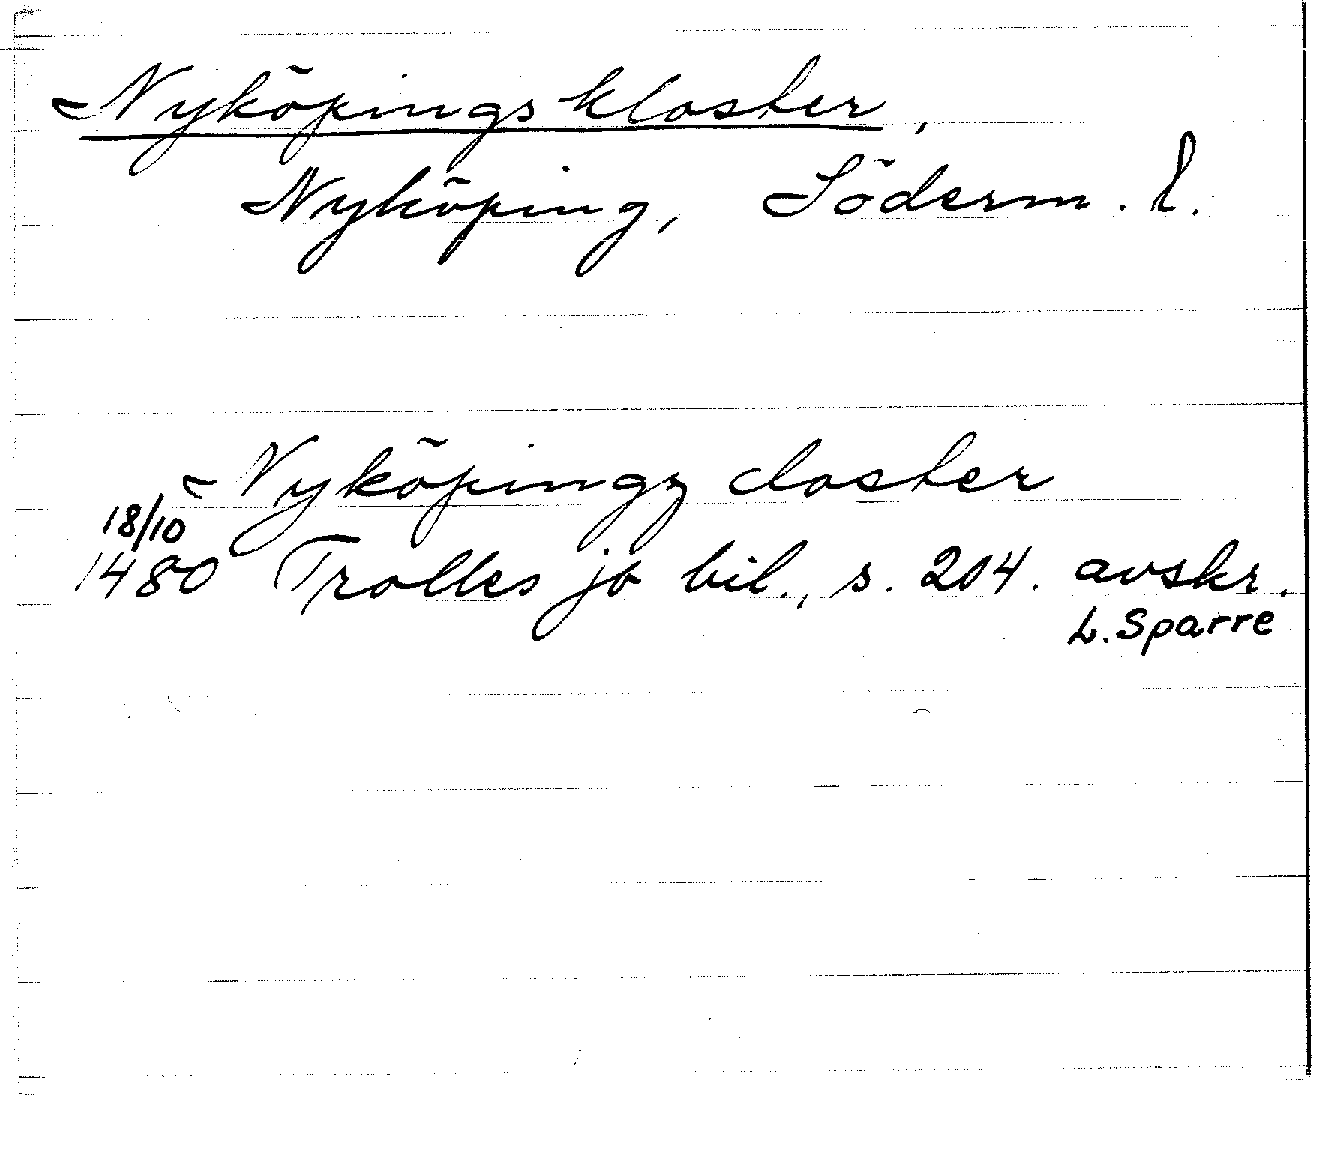 Nyköpingskloster,
Nyköping, Söderm. l.
Nyköpingz closter
18/10
1480 Trolles jb bil., s. 204. avskr.
L. Sparre